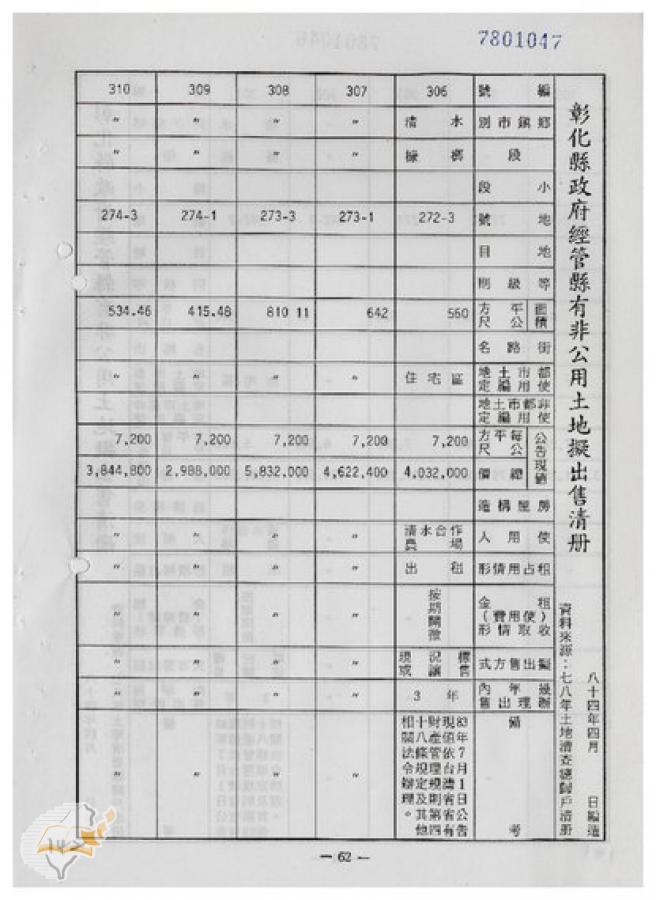 7801047
彰化縣政府經管縣有非公用土地擬出售清册
八十四年四月　日編造
資料來源：七八年土地清查總歸戶清册
編號 306 307 308 309 310
鄉鎮市別 清水 〃 〃 〃 〃
段 槺榔 〃 〃 〃 〃
小段
地號 272-3 273-1 273-3 274-1 274-3
地目
等級則
面積 平方公尺 560 642 810 11 415.48 534.46
街路名
都市土地使用編定 住宅區 〃 〃 〃 〃
非都市土地使用編定
公告現值 每平方公尺 7,200 7,200 7,200 7,200 7,200
總價 4,032,000 4,622,400 5,832,000 2,988,000 3,844,800
房屋構造
使用人 清水合作農場 〃 〃 〃 〃
租占用情形 出租 〃 〃 〃 〃
租金(使用費)收取情形 按期開徵 〃 〃 〃 〃
擬出售方式 現況標售或讓售 〃 〃 〃 〃
幾年內辦理出售 3年 〃 〃 〃 〃
備考 83年7月1日公告現值依台灣省省有財產管理規則第四十八條規定及其他相關法令辦理。 〃 〃 〃 〃
— 62 —
142